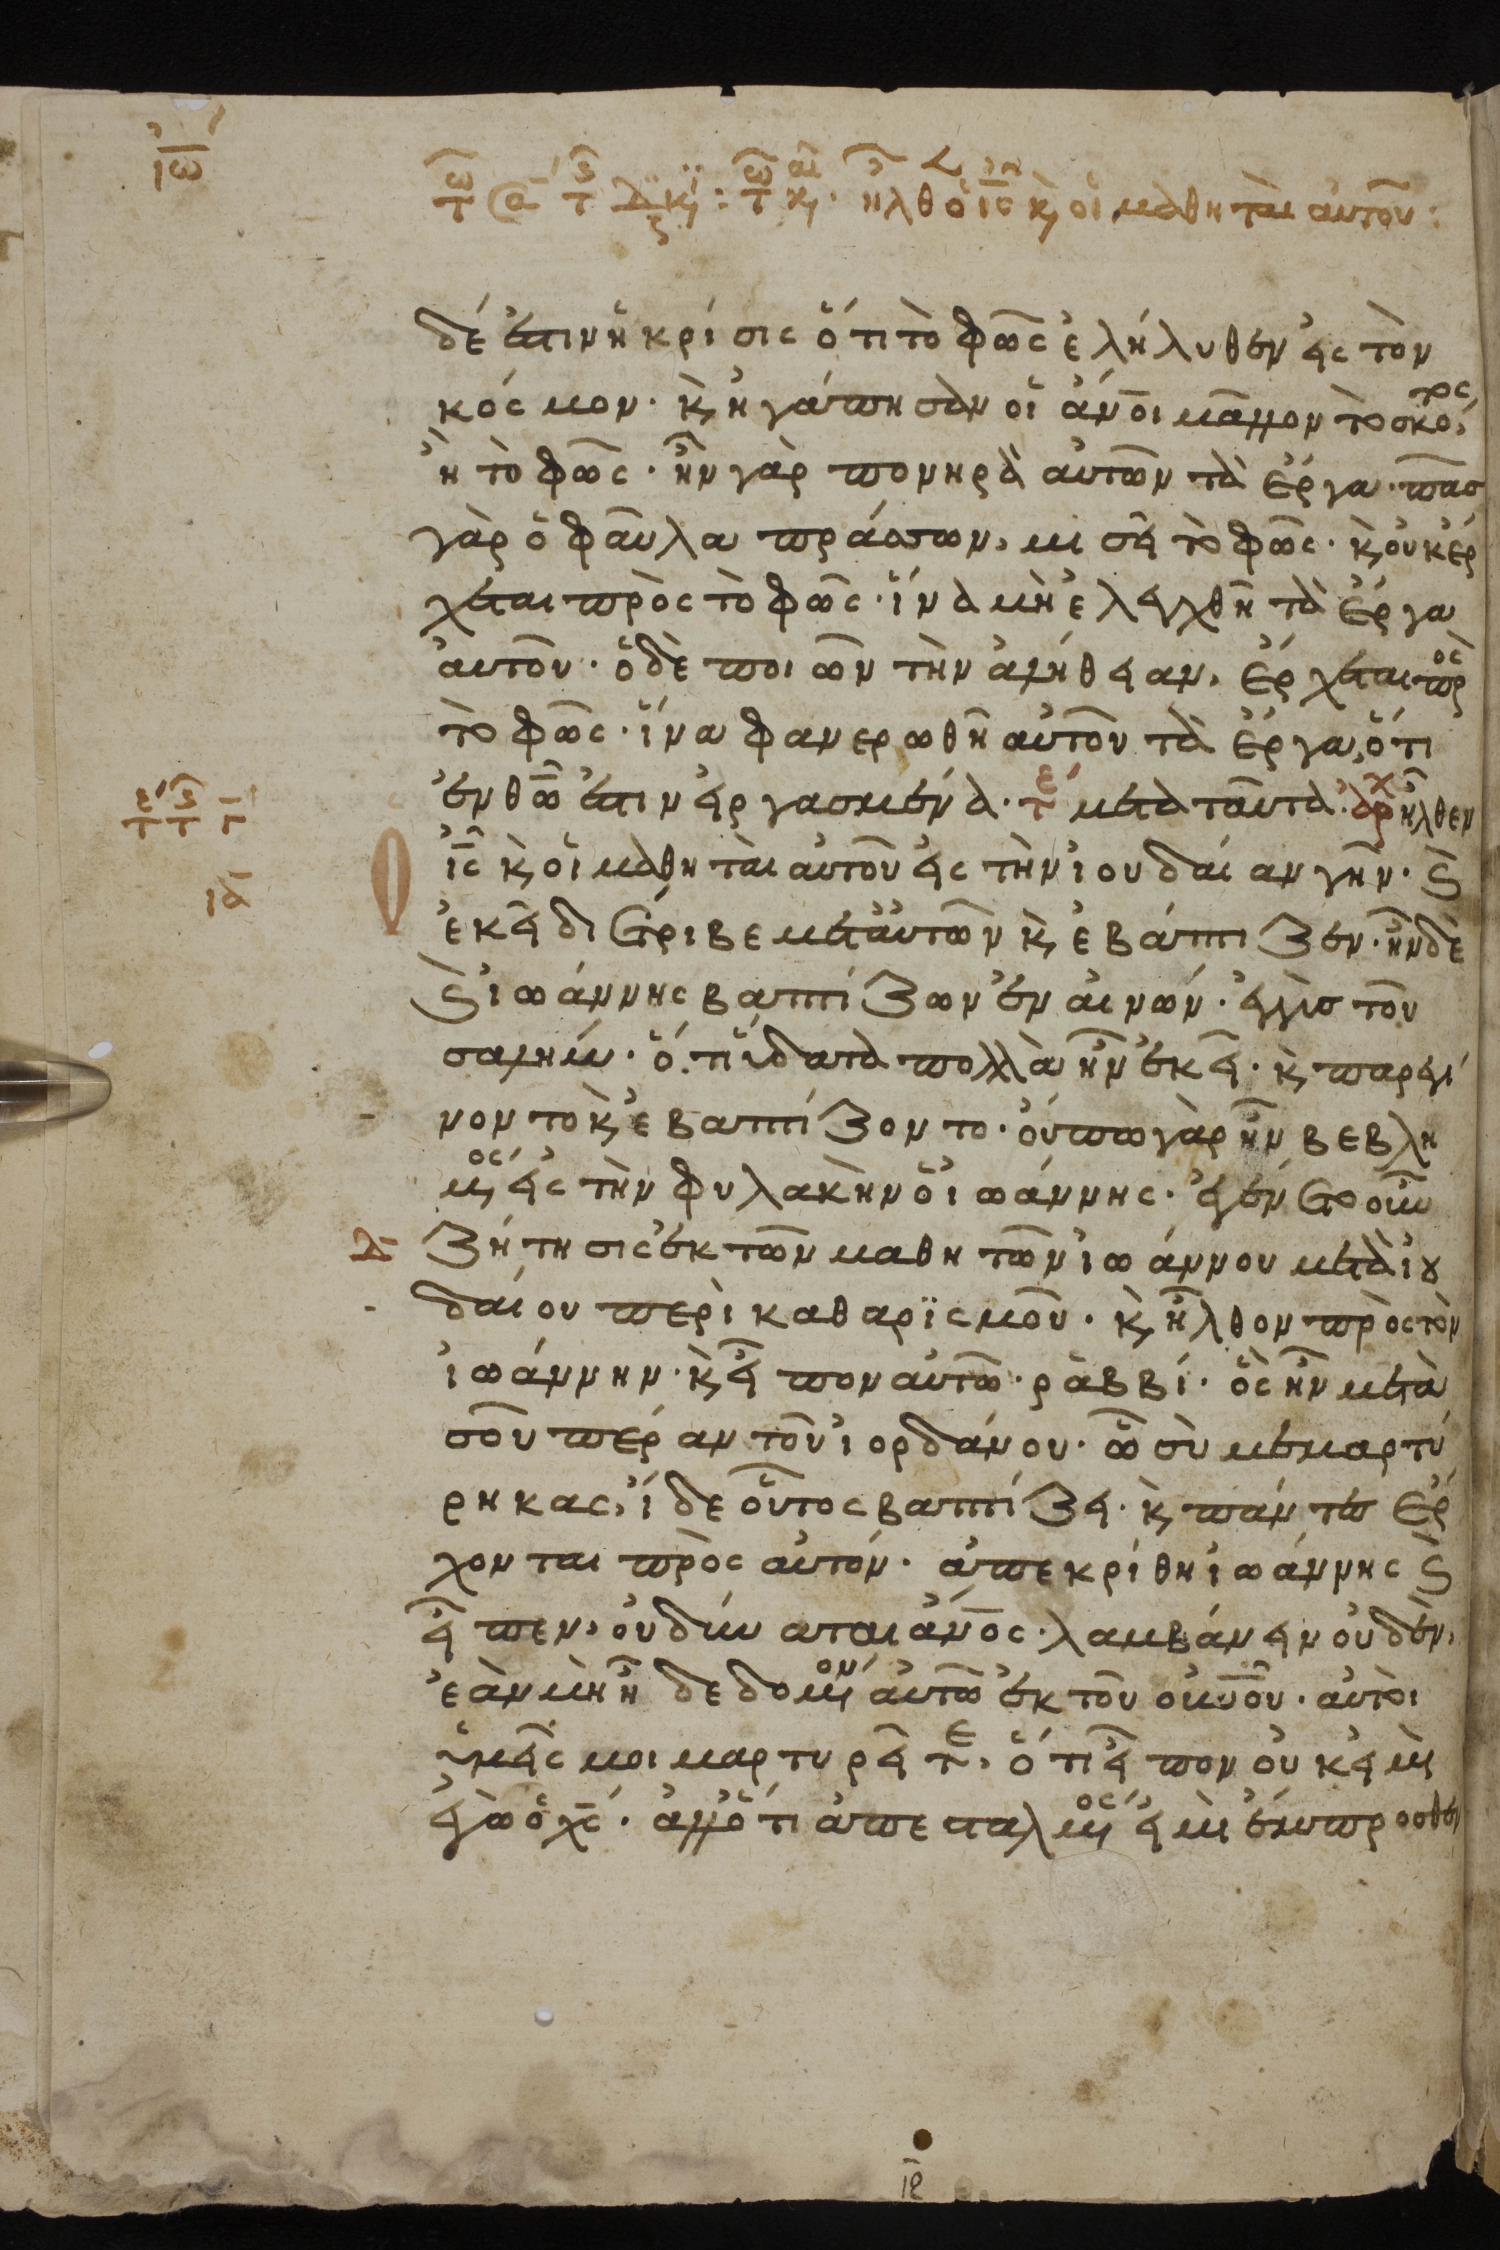 ἦλθ ὁ ις κ οἱ μαθηταὶ αὐτοῦ:
δέ ἐστιν ἡ κρίσις ὅτι τὸ φῶς ἐλήλυθεν εἰς τὸν
κόσμον. κ ἠγάπησαν οἱ ἀνοι μᾶλλον τὸ σκότος
ἢ τὸ φῶς. ἦν γὰρ πονηρὰ αὐτῶν τὰ ἔργα. πᾶσ
γὰρ ὁ φαῦλα πράσσων, μισεῖ τὸ φῶς. κ οὐκ ἔρ
χεται πρὸς τὸ φῶς. ἵνα μὴ ἐλεγχθῆ τὰ ἔργα
αὐτοῦ. ὁ δὲ ποιῶν τὴν ἀλήθειαν, ἔρχεται πρὸς
τὸ φῶς. ἵνα φανερωθῆ αὐτοῦ τὰ ἔργα, ὅτι
ἐν θῶ ἐστιν εἰργασμένα. τε μετὰ ταῦτα. αρχ ἦλθεν
ις κ οἱ μαθηταὶ αὐτοῦ εἰς τὴν ἰουδαίαν γῆν. κ
ἐκεῖ διέτριβε μετ αὐτῶν κ ἐβάπτιζεν. ἦν δὲ
κ ἰωάννης βαπτίζων ἐν αἰνών. ἐγγὺσ τοῦ
σαλήμ. ὅτι ὕδατα πολλὰ ἦν ἐκεῖ. κ παρεγί
νοντο κ ἐβαπτίζοντο. οὔπω γὰρ ἦν βεβλη
μένος εἰς τὴν φυλακὴν ὁ ἰωάννης. ἐγένετο οὖν
ζήτησις ἐκ τῶν μαθητῶν ἰωάννου μετὰ ἰου
δαίου περὶ καθαρϊσμοῦ. κ ἦλθον πρὸς τὸν
ἰωάννην. κ εἶπον αὐτῶ. ῥαββί. ὃς ἦν μετὰ
σοῦ πέραν τοῦ ἰορδάνου. ὧ σὺ μεμαρτύ
ρηκας, ἴδε οὗτος βαπτίζει. κ πάντες ἔρ
χονται πρὸς αὐτόν. ἀπεκρίθη ἰωάννης κ
εἶπεν, οὐ δύναται ἀνος. λαμβάνειν οὐδέν,
ἐὰν μὴ ἦ δεδομένον αὐτῶ ἐκ τοῦ οὐνοῦ. αὐτοὶ
ὑμεῖς μοι μαρτυρεῖτε, ὅτι εἶπον οὐκ εἰμὶ
ἐγὼ ὁ χς. ἀλλ ὅτι ἀπεσταλμένος εἰμὶ ἔμπροσθεν